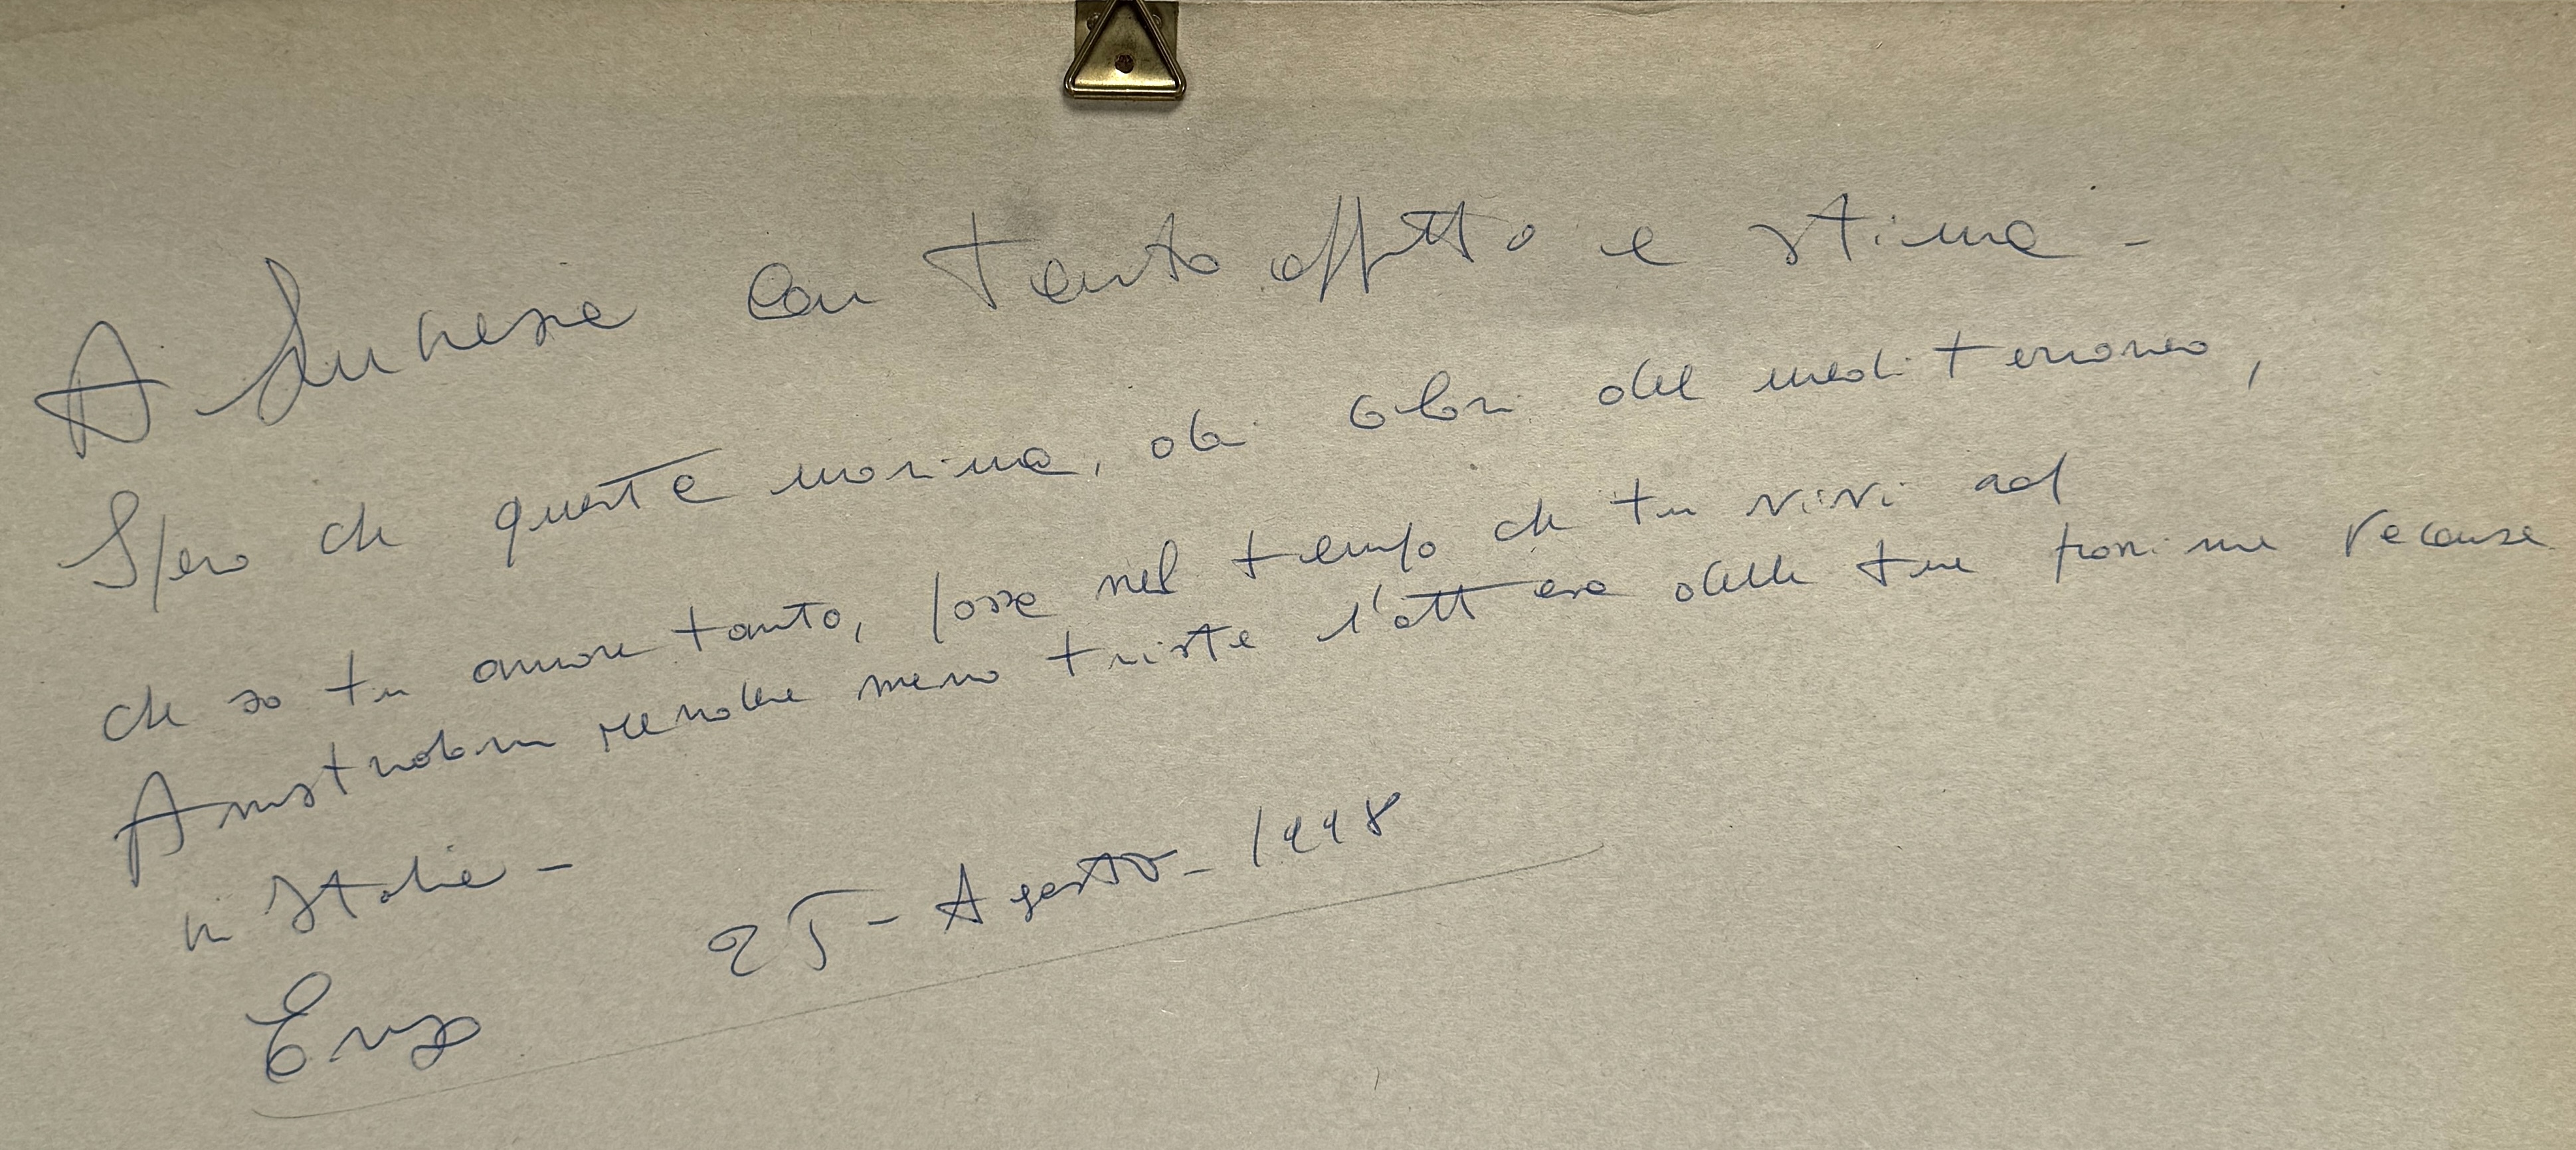 A Lucrezia con tanto affetto e stima -
Spero che questa marina, dai colori del mediterraneo,
che so tu amare tanto, possa nel tempo che tu vivi ad
Amsterdam rendere meno triste l'attesa delle tue prossime vacanze
in Italia -
25 - Agosto - 1998
Enzo